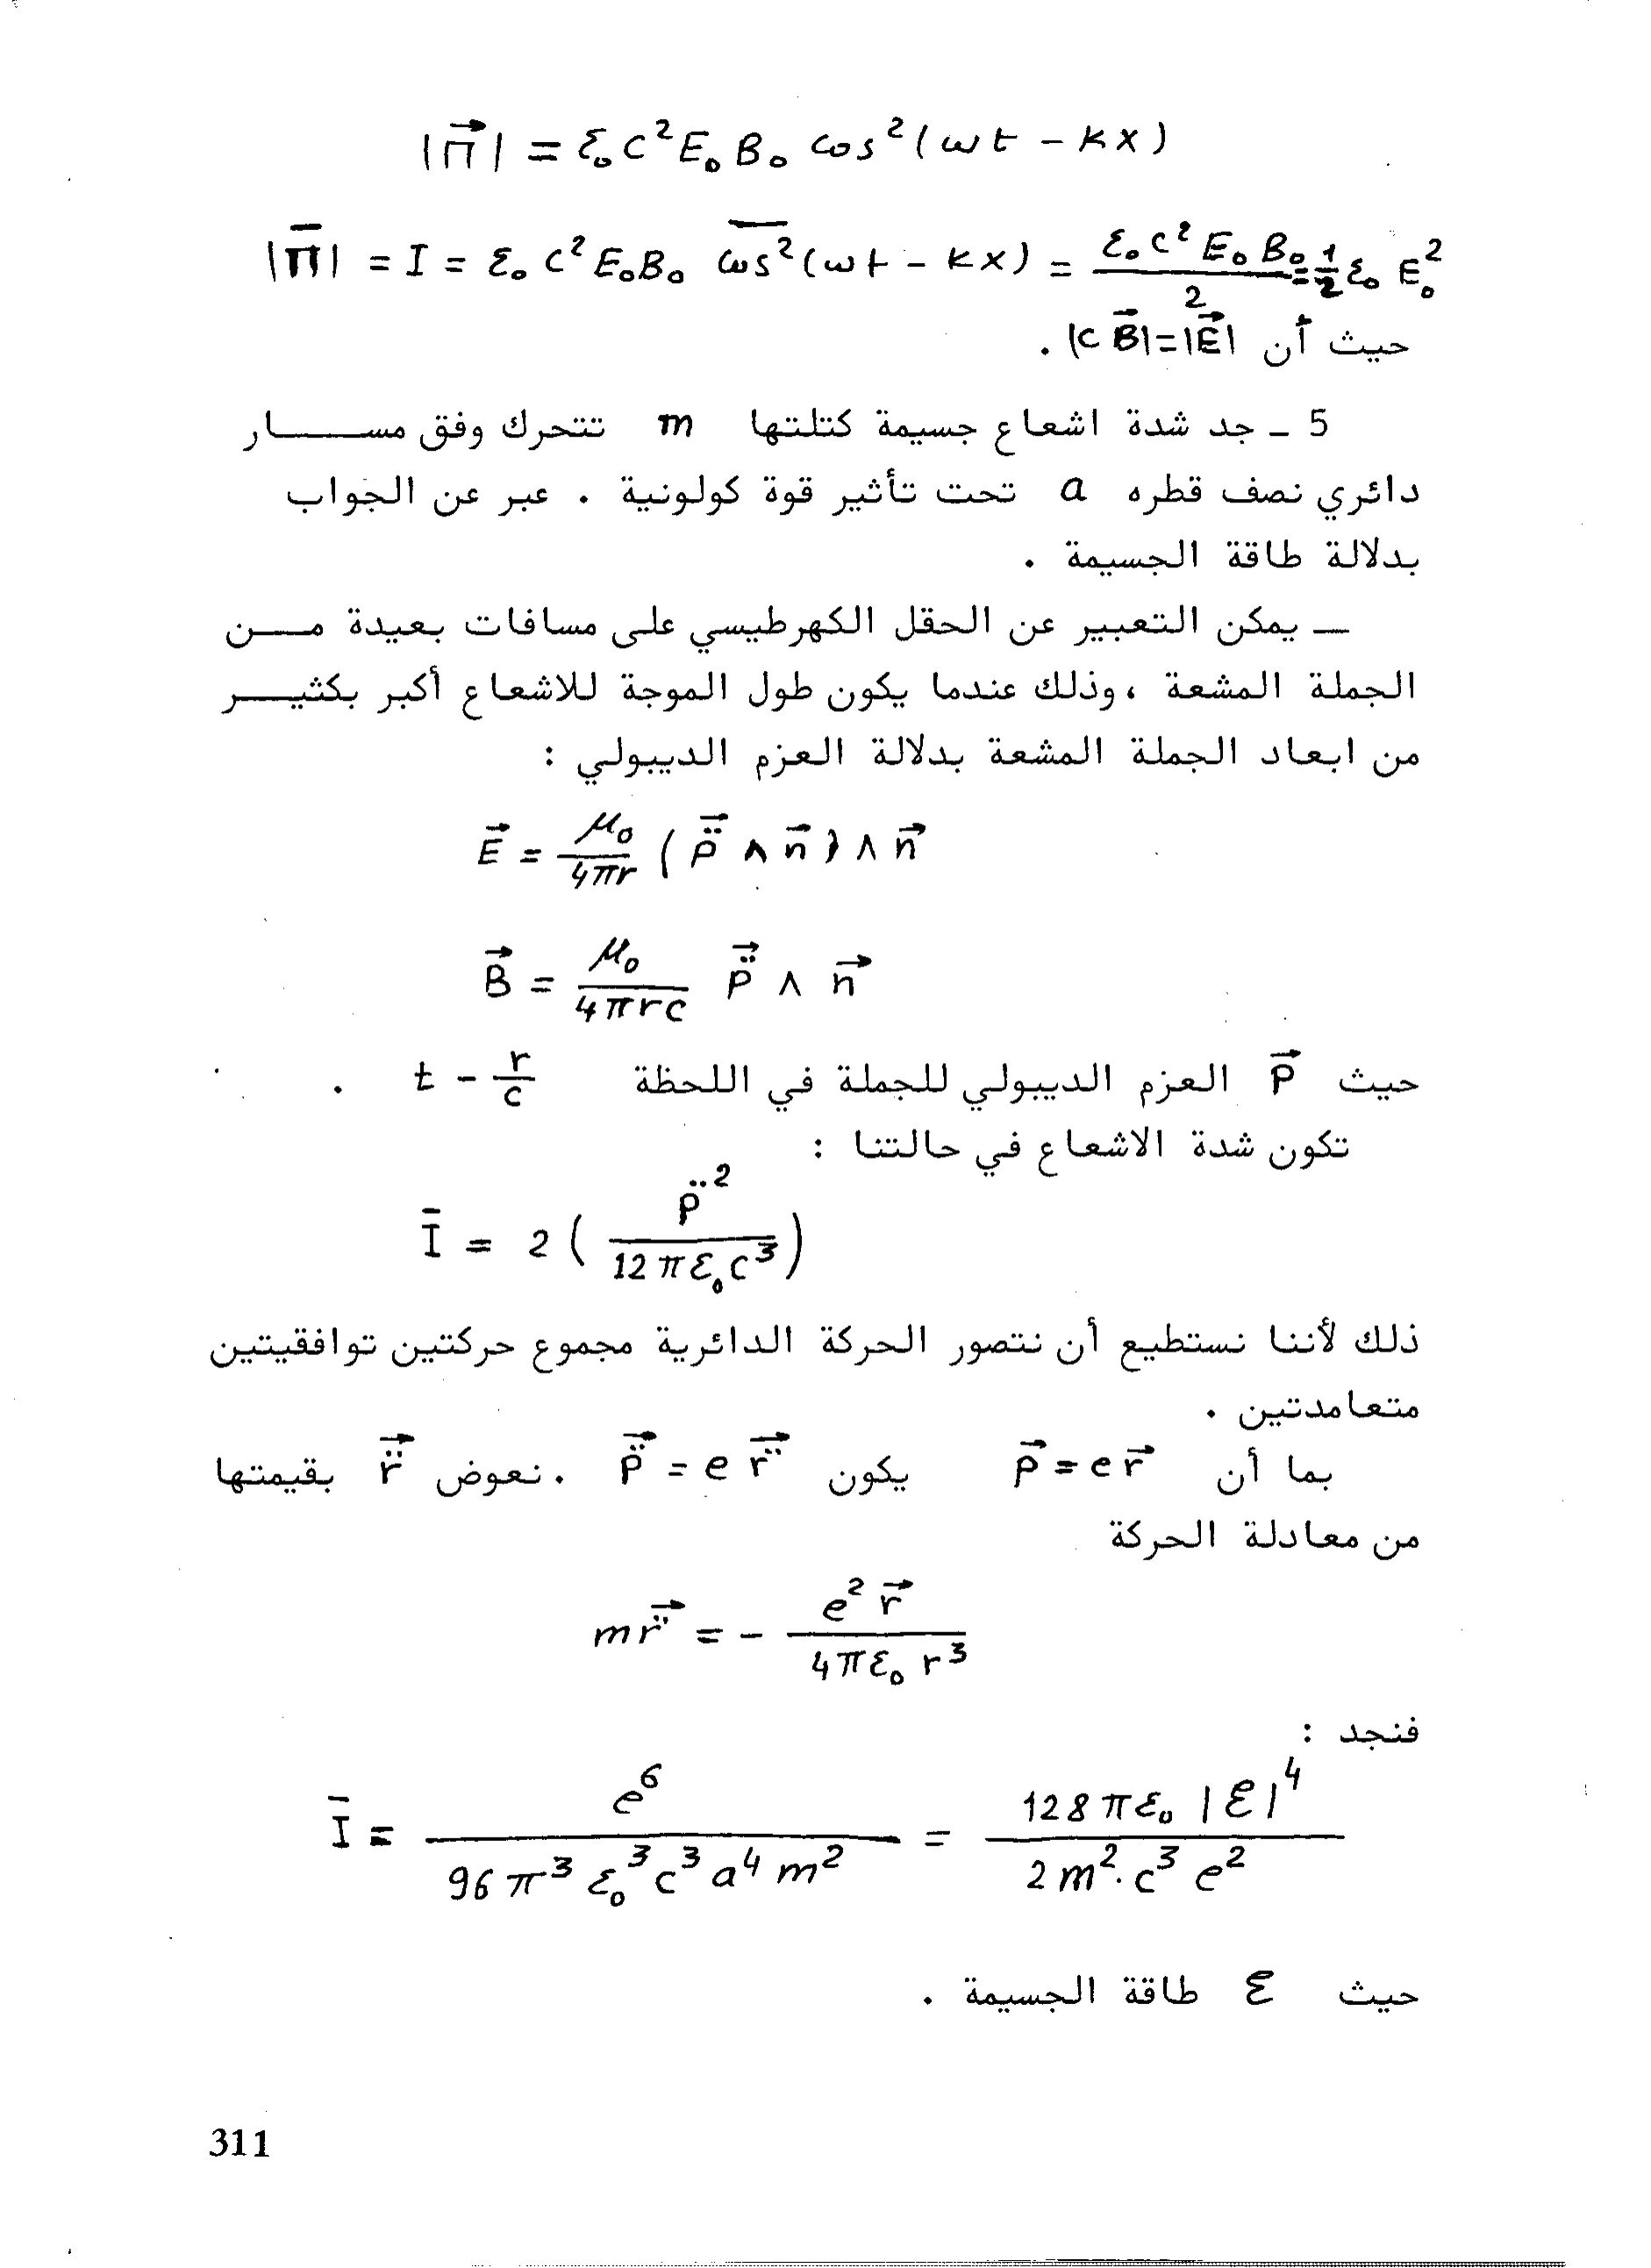 |Π⃗| = ε₀c²E₀B₀ cos²(ωt - kx)
|Π̄| = I = ε₀ c² E₀B₀ c̅o̅s̅²(ωt - kx) = ε₀c²E₀B₀/2 = 1/2 ε₀ E₀²
حيث أن |E⃗|=|c B⃗| .
5 ـ جد شدة اشعاع جسيمة كتلتها m تتحرك وفق مســـــار
دائري نصف قطره a تحت تأثير قوة كولونية . عبر عن الجواب
بدلالة طاقة الجسيمة .
ـ يمكن التعبير عن الحقل الكهرطيسي على مسافات بعيدة مــن
الجملة المشعة ، وذلك عندما يكون طول الموجة للاشعاع أكبر بكثيـــر
من ابعاد الجملة المشعة بدلالة العزم الديبولي :
E⃗ = μ₀/4πr (p̈⃗ ∧ n⃗) ∧ n⃗
B⃗ = μ₀/4πrc p̈⃗ ∧ n⃗
حيث p⃗ العزم الديبولي للجملة في اللحظة t - r/c .
تكون شدة الاشعاع في حالتنا :
Ī = 2 ( p̈²/12πε₀c³ )
ذلك لأننا نستطيع أن نتصور الحركة الدائرية مجموع حركتين توافقيتين
متعامدتين .
بما أن p⃗ = e r⃗ يكون p̈⃗ = e r̈⃗ . نعوض r̈⃗ بقيمتها
من معادلة الحركة
m r̈⃗ = - e² r⃗/4πε₀ r³
فنجد :
Ī = e⁶/96 π³ ε₀³ c³ a⁴ m² = 128 πε₀ |ℰ|⁴/2 m². c³ e²
حيث ℰ طاقة الجسيمة .
311